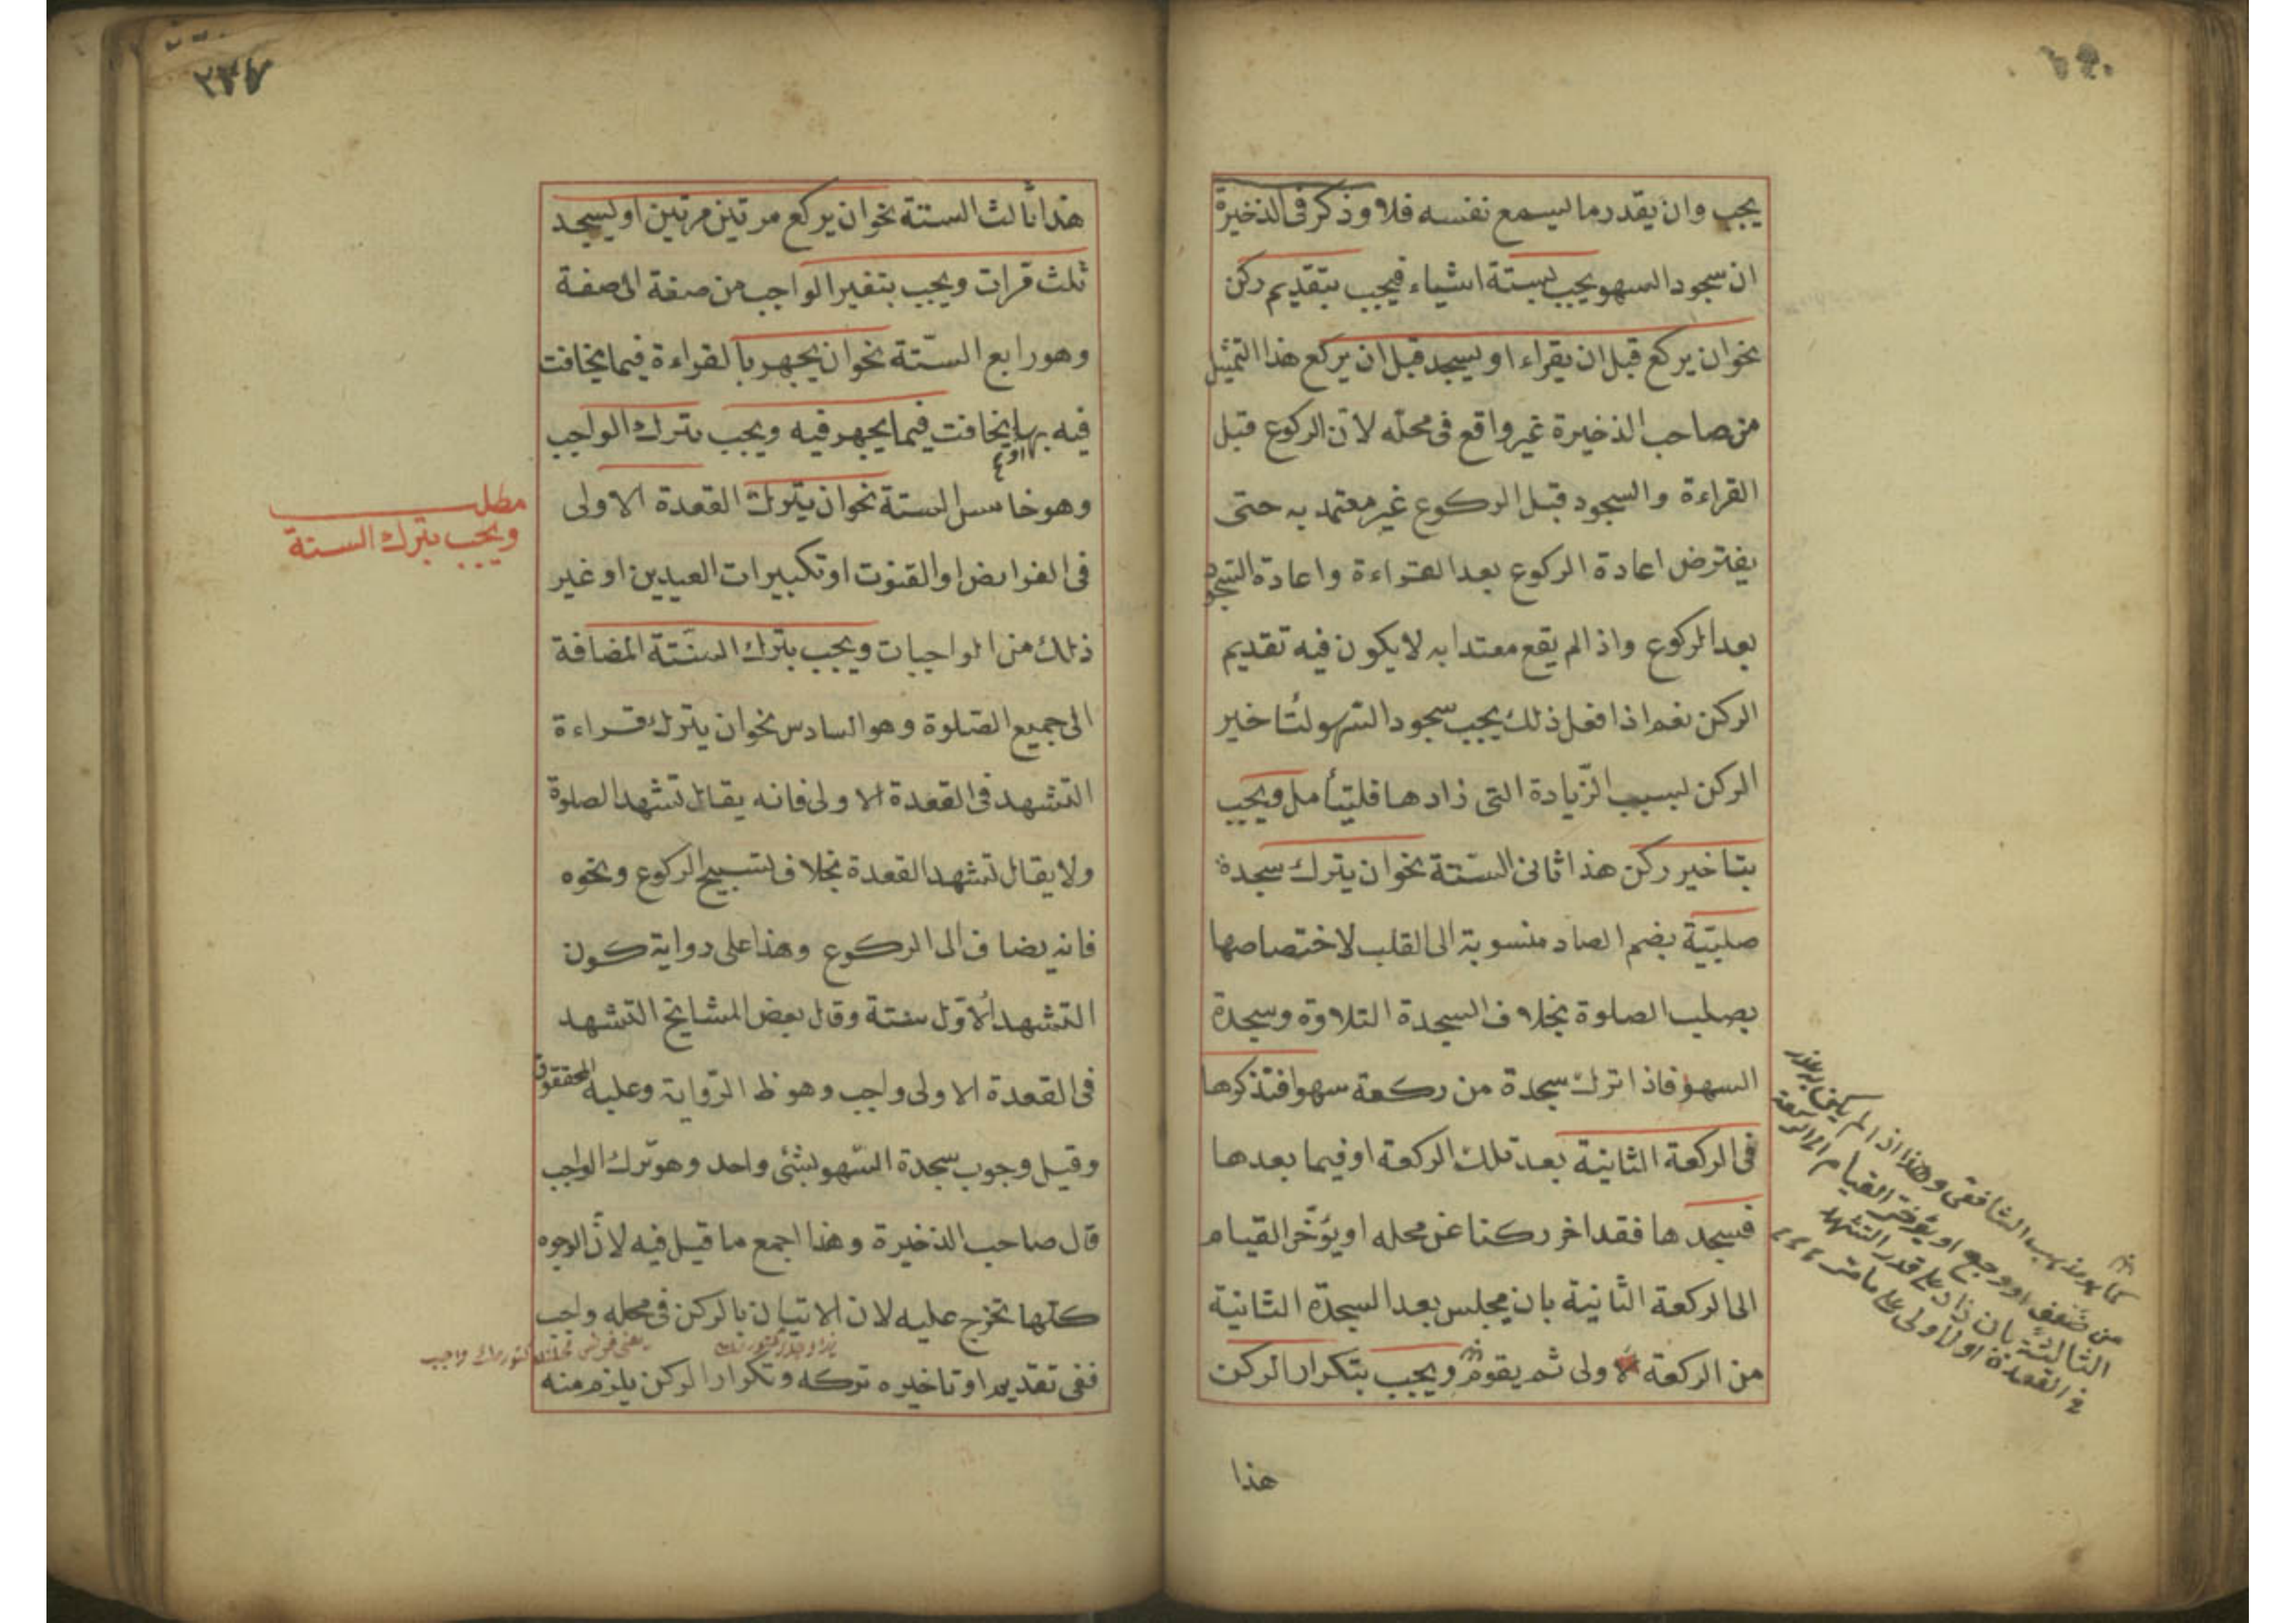 يجب وان يقدر ما ليسمع نفسه فلا وذكر فى الذخيرة
ان سجود السهو يجب بستة اشياء فيجب بتقديم ركن
نحو ان يركع قبل ان يقراء او يسجد قبل ان يركع هذا التمثيل
من صاحب الذخيرة غير واقع فى محله لان الركوع قبل
القراءة والسجود قبل الركوع غير معتمد به حتى
يفترض اعادة الركوع بعد القراءة واعادة السجود
بعد الركوع واذا لم يقع معتدا به لا يكون فيه تقديم
الركن نعم اذا فعل ذلك يجب سجود السهو لتاخير
الركن بسبب الزيادة التى زادها فليتأمل ويجب
بتاخير ركن هذا ثانى الستة نحو ان يترك سجدة
صلبية بضم الصاد منسوبة الى القلب لاختصاصها
بصلب الصلوة بخلاف السجدة التلاوة وسجدة
السهو فاذا ترك سجدة من ركعة سهوا فتذكرها
فى الركعة الثانية بعد تلك الركعة او فيما بعدها
فسجدها فقد اخر ركنا عن محله او يؤخر القيام
الى الركعة الثانية بان يجلس بعد السجدة الثانية
من الركعة الاولى ثم يقوم ويجب بتكرار الركن
هذا
كما هو مذهب الشافعى وهذا اذا لم يكن
من ضعف او وجع او يؤخر القيام الى الركعة
الثالثة بان زاد على قدر التشهد
فى القعدة الاولى على ما مر
٢٣٧
هذا ثالث الستة نحو ان يركع مرتين مرتين او يسجد
ثلث قرات ويجب بتغير الواجب من صفة الى صفة
وهو رابع الستة نحو ان يجهر بالقراءة فيما يخافت
فيه بها او يخافت فيما يجهر فيه ويجب بترك الواجب
وهو خامس الستة نحو ان يترك القعدة الاولى
فى الفرايض او القنوت او تكبيرات العيدين او غير
ذلك من الواجبات ويجب بترك السنتة المضافة
الى جميع الصلوة وهو السادس نحو ان يترك قراءة
التشهد فى القعدة الاولى فانه يقال تشهد الصلوة
ولا يقال تشهد القعدة بخلاف تسبيح الركوع ونحوه
فانه يضاف الى الركوع وهذا على رواية كون
التشهد الاول سنتة وقال بعض المشايخ التشهد
فى القعدة الاولى واجب وهو ظ الرواية وعليه المحققون
وقيل وجوب سجدة السهو بشئ واحد وهو ترك الواجب
قال صاحب الذخيرة وهذا اجمع ما قيل فيه لان الوجوه
كلها تخرج عليه لان الاتيان بالركن فى محله واجب
ففى تقديم او تاخيره تركه وتكرار الركن يلزم منه
مطلب
ويجب بترك السنة